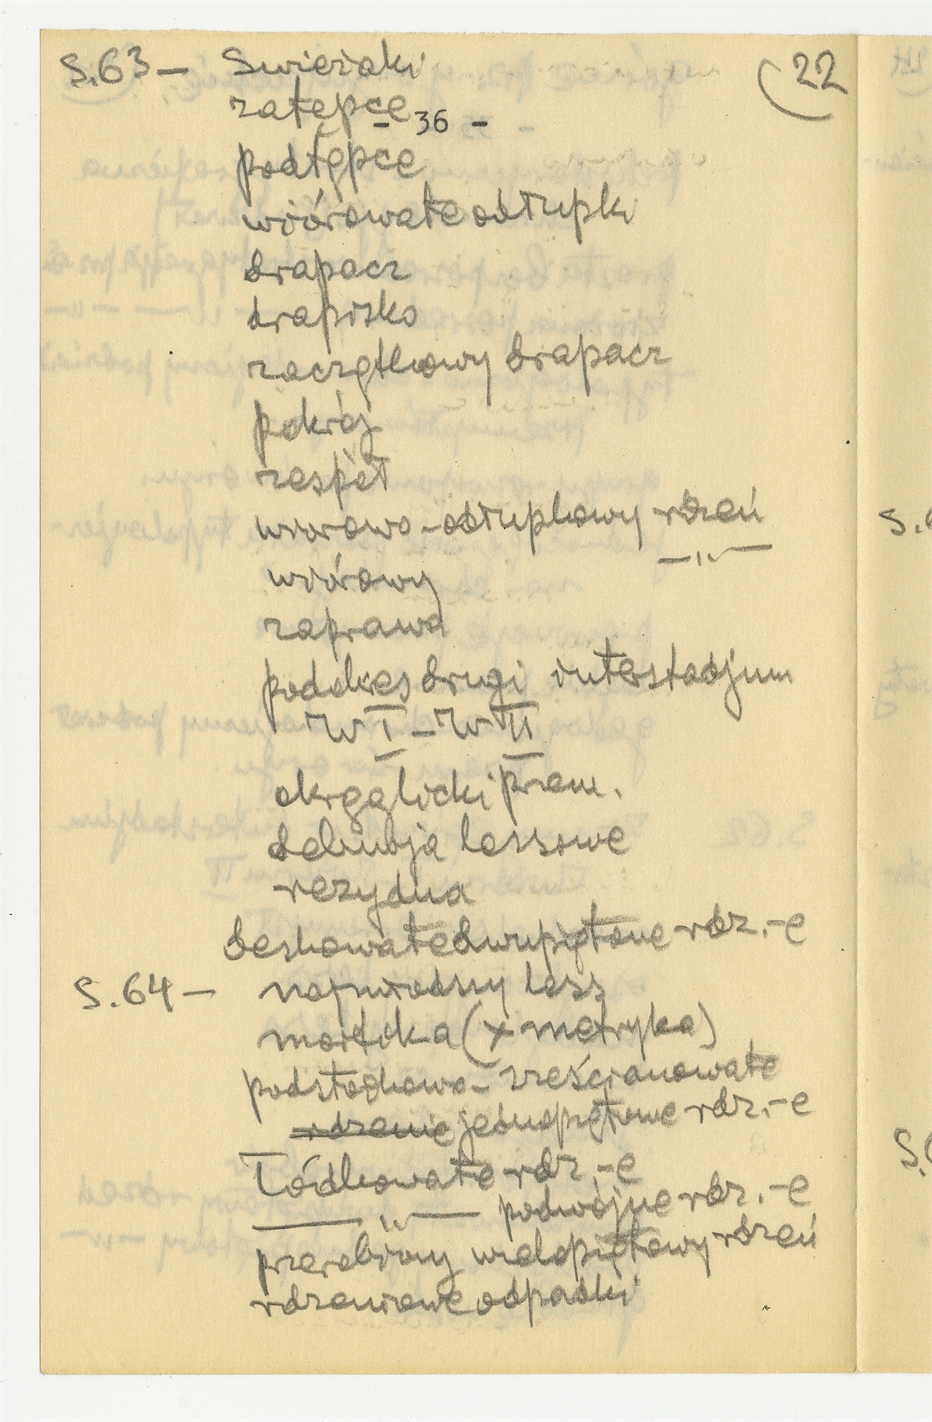 22
S.63 – Świeżaki
zatępce
- 36 -
podtępce
wiórowate odłupki
drapacz
drapisko
zaczątkowy drapacz
pokrój
zespół
wiórowo-odłupkowy rdzeń
wiórowy –„–
zaprawa
podokres drugi interstadjum
W I – W II
okrąglicki przem.
deluvja lessowe
rezydua
deskowate dwupiętowe rdz.-e
S.64 – najmłodszy less
(x metryka)
podstożkowo-sześcianowate
rdzenie jednopiętowe rdz.-e
łódkowate rdz.-e
–„– podwójne rdz.-e
przerobiony wielopiętowy rdzeń
rdzeniowe odpadki